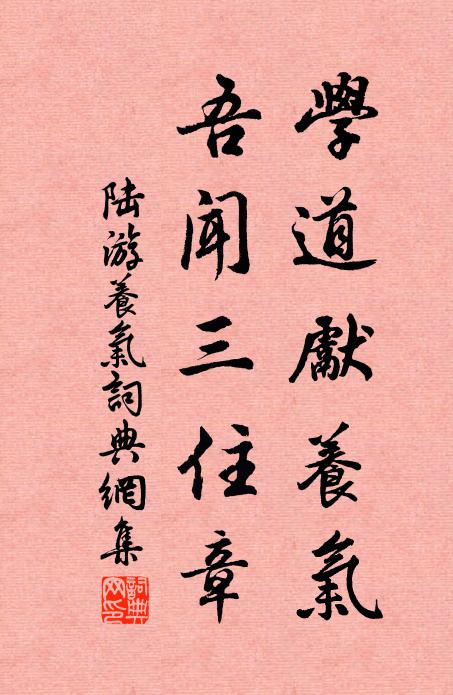 學道獻養氣
吾聞三住章
陸游養氣詞典網集
詞典網印